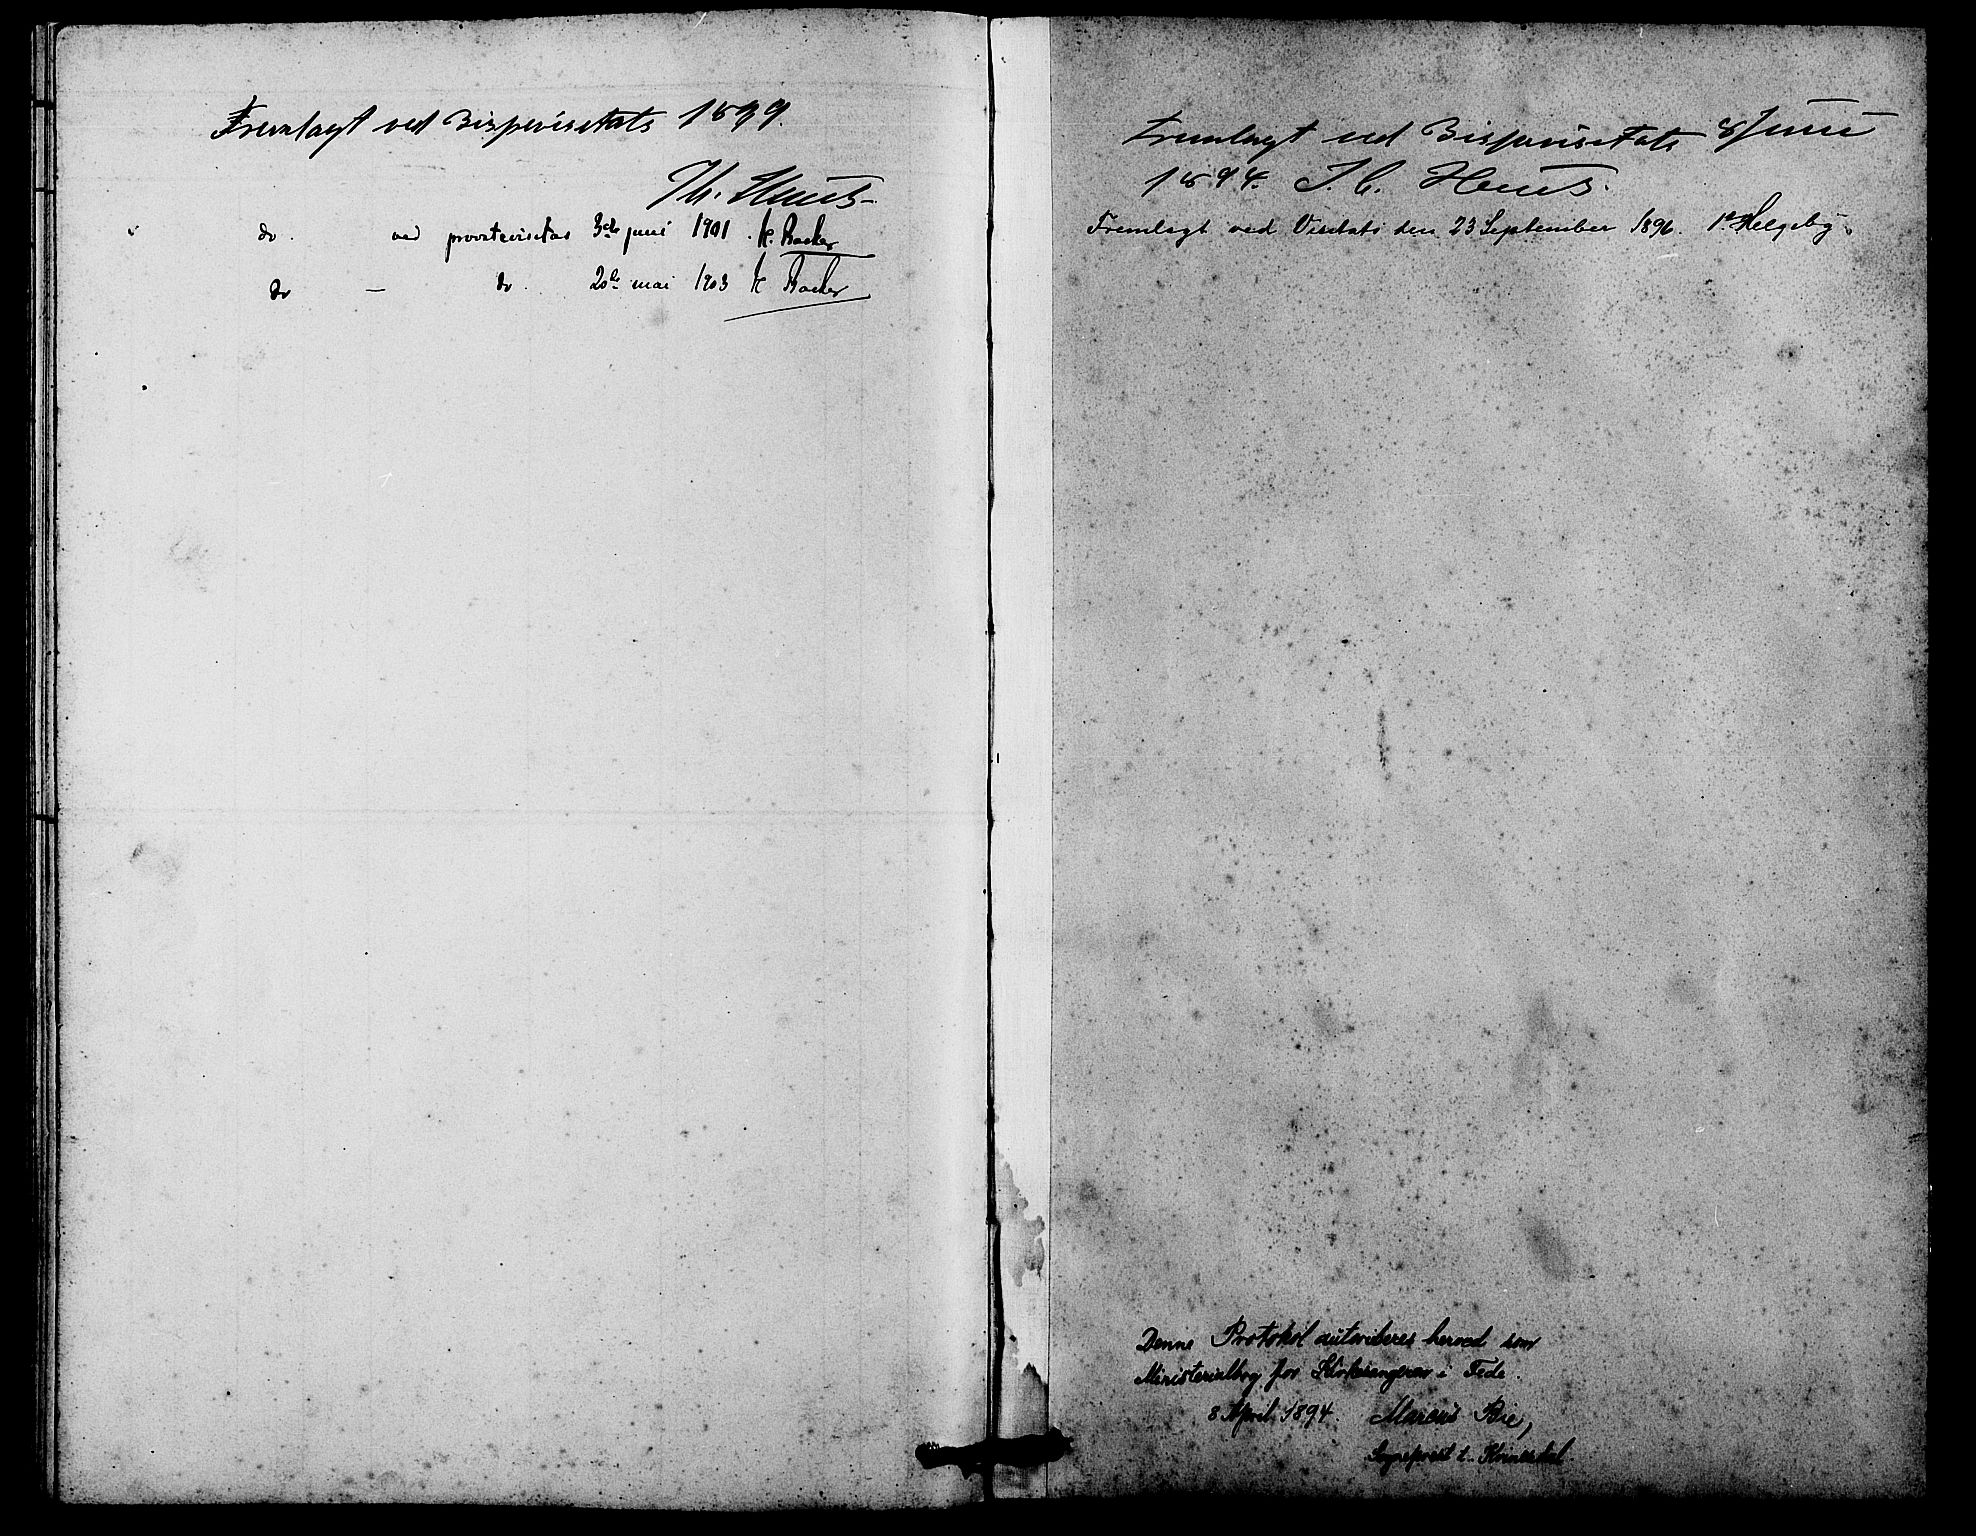 Fremlagt ved Bispevisitats 1899.
do. ved provstevisitas 3de juni 1901. K. Backer
do — do. 20de mai 1903 K Backer
Fremlagt ved Bispevisitats 8 Juni
1894. J. C. Heuch.
Fremlagt ved Visitats den 23 September 1896.
Denne Protokol autoriseres herved som
Ministerialbog for Kirkesangeren i Fede.
8 April 1894. Marcus Bie,
Sogneprest t. Kvinesdal.